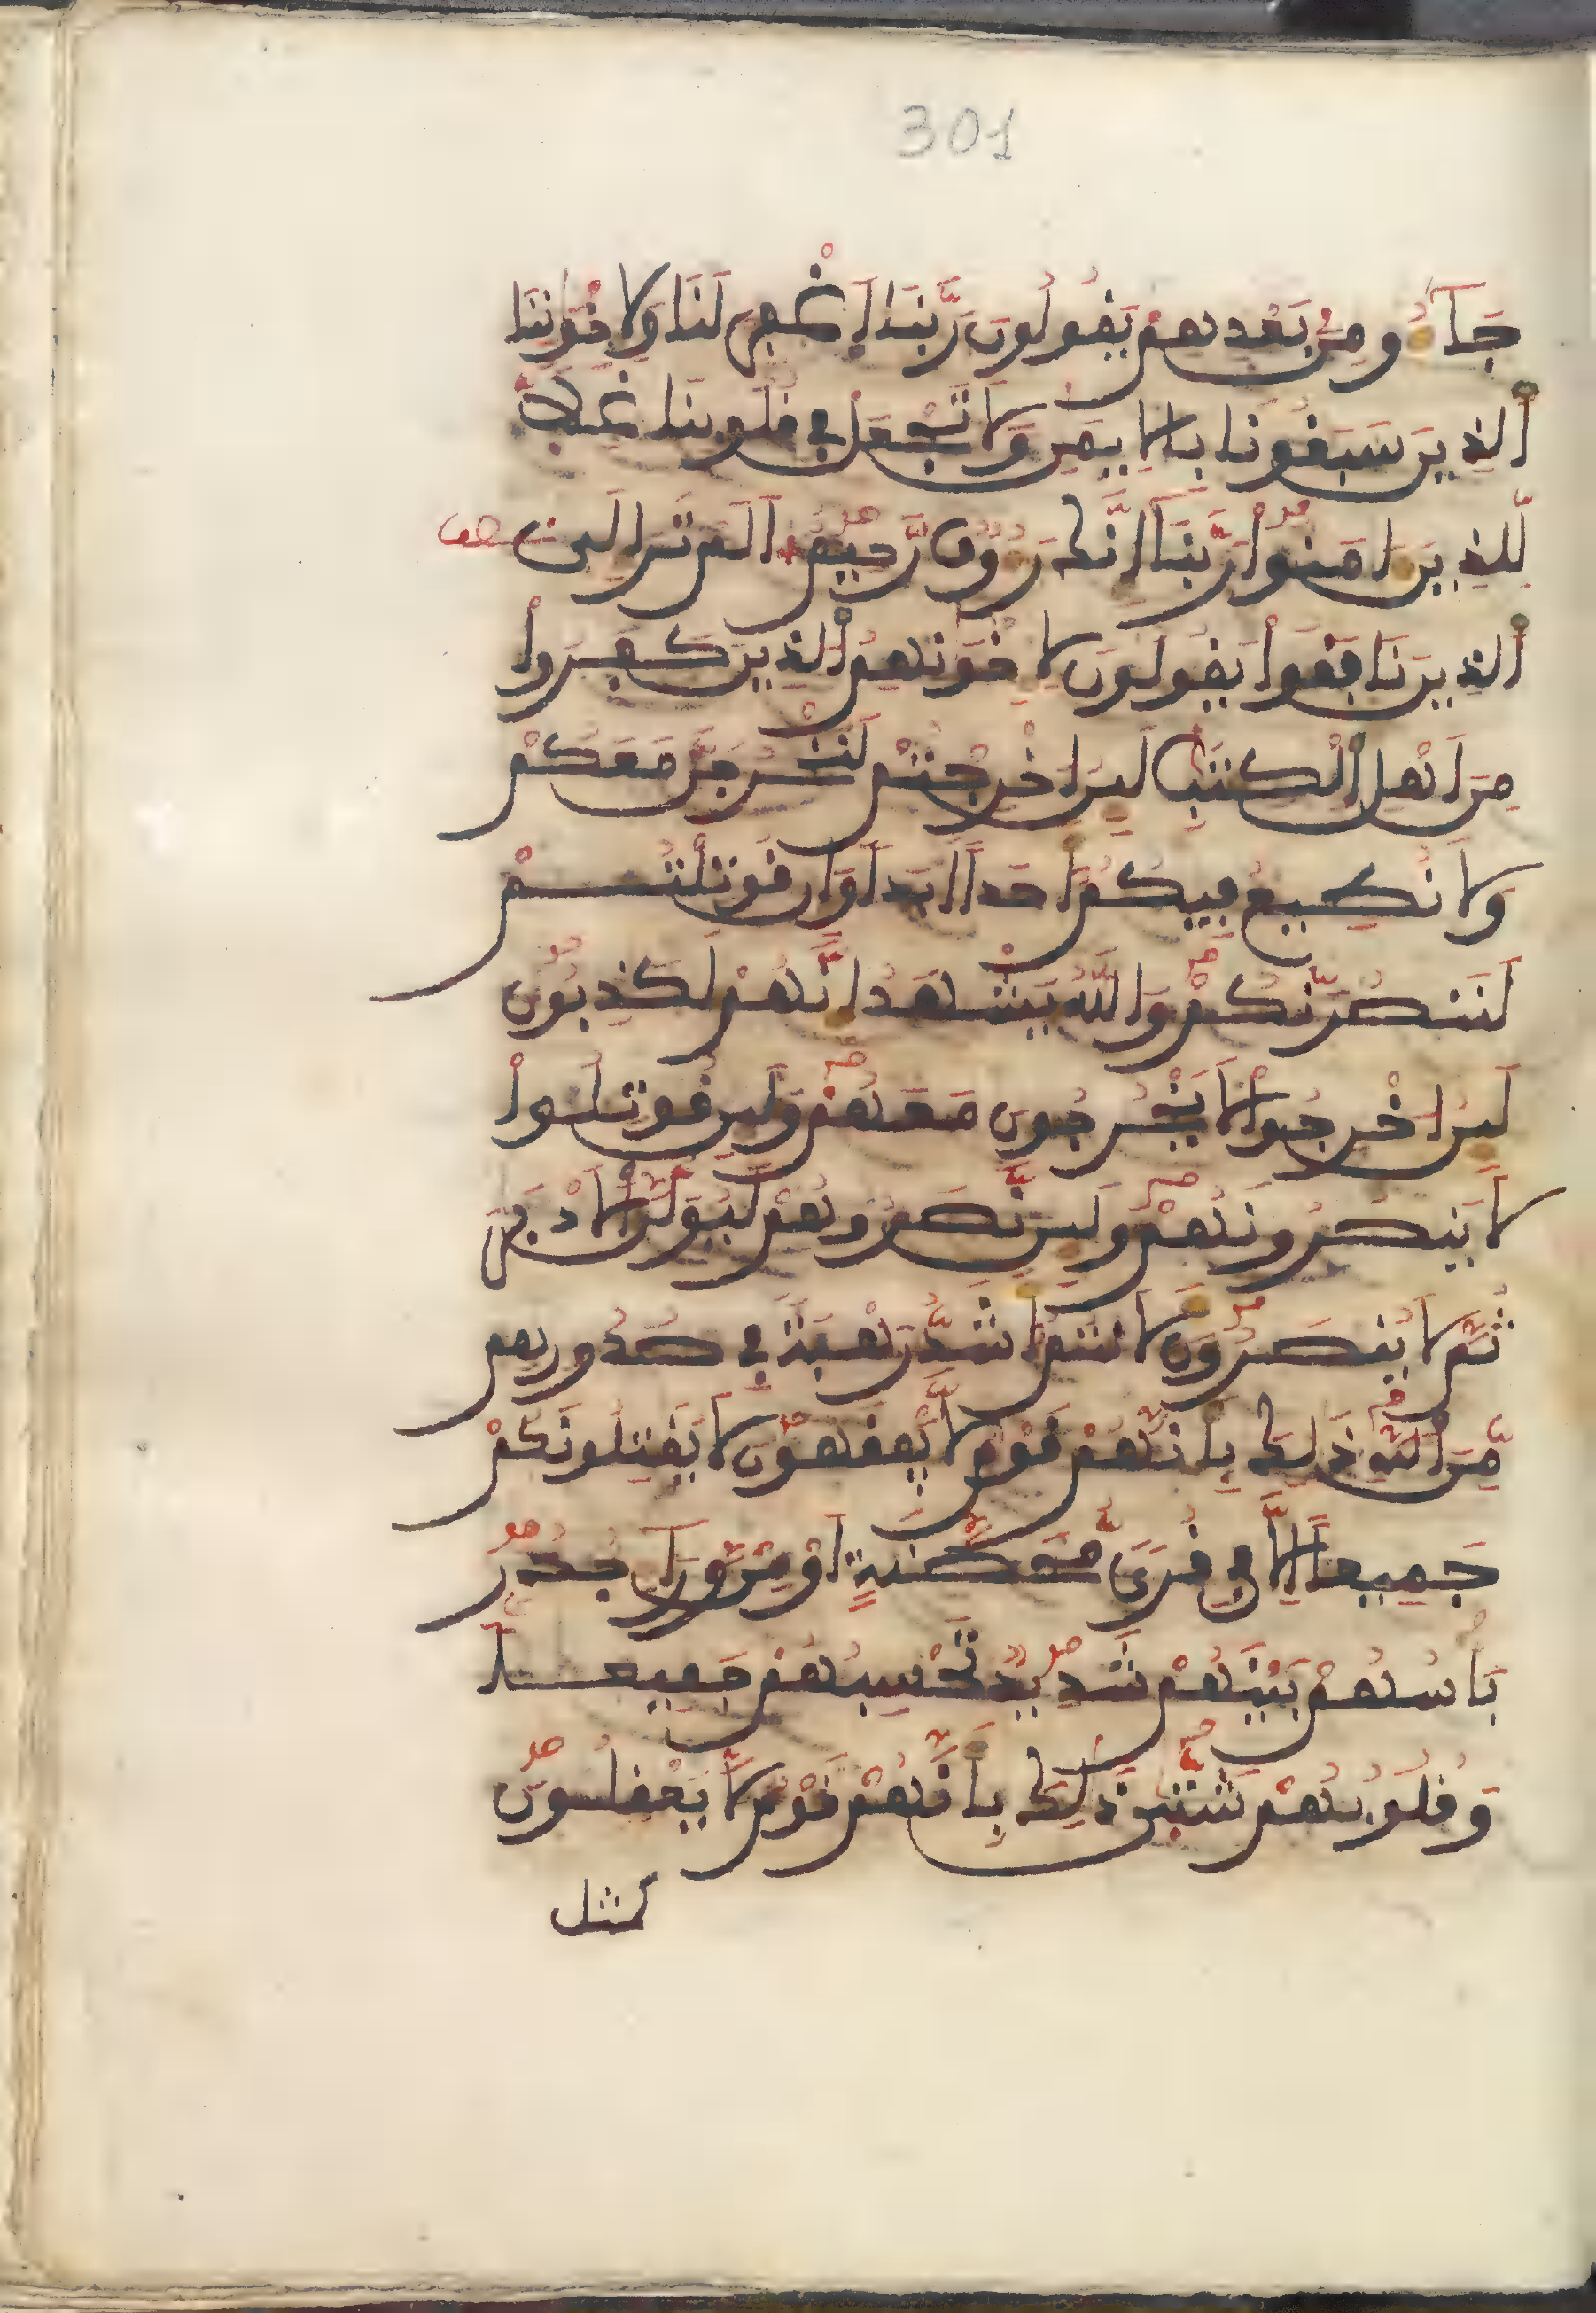 301
جَآءُو مِنۢ بَعْدِهِمْ يَقُولُونَ رَبَّنَا اَ۪غْفِرْ لَنَا وَلِإِخْوَٰنِنَا
اَ۬لذِينَ سَبَقُونَا بِالِايمَٰنِ وَلَا تَجْعَلْ فِے قُلُوبِنَا غِلّاٗ
لِّلذِينَ ءَامَنُواْ رَبَّنَآ إِنَّكَ رَءُوفٞ رَّحِيمٌ اَلَمْ تَرَ إِلَى نصف
اَ۬لذِينَ نَافَقُواْ يَقُولُونَ لِإِخْوَٰنِهِمُ اُ۬لذِينَ كَفَرُواْ
مِنَ اَهْلِ اِ۬لْكِتَٰبِ لَئِنُ اخْرِجْتُمْ لَنَخْرُجَنَّ مَعَكُمْ
وَلَا نُطِيعُ فِيكُمُۥٓ أَحَداً اَبَداٗ وَإِن قُوتِلْتُمْ
لَنَنصُرَنَّكُمْ وَاللَّهُ يَشْهَدُ إِنَّهُمْ لَكَٰذِبُونَ
لَئِنُ اخْرِجُواْ لَا يَخْرُجُونَ مَعَهُمْ وَلَئِن قُوتِلُواْ
لَا يَنصُرُونَهُمْ وَلَئِن نَّصَرُوهُمْ لَيُوَلُّنَّ اَ۬لَادْبَٰرَ
ثُمَّ لَا يُنصَرُونَ لَأَنتُمُۥٓ أَشَدُّ رَهْبَةٗ فِے صُدُورِهِم
مِّنَ اَ۬للَّهِ ذَٰلِكَ بِأَنَّهُمْ قَوْمٞ لَّا يَفْقَهُونَ لَا يُقَٰتِلُونَكُمْ
جَمِيعاً اِلَّا فِے قُرىٗ مُّحَصَّنَةٍ اَوْ مِنْ وَّرَآءِ جُدُرِۢ
بَأْسُهُم بَيْنَهُمْ شَدِيدٞ تَحْسِبُهُمْ جَمِيعاٗ
وَقُلُوبُهُمْ شَتَّىٰ ذَٰلِكَ بِأَنَّهُمْ قَوْمٞ لَّا يَعْقِلُونَ
كمثل